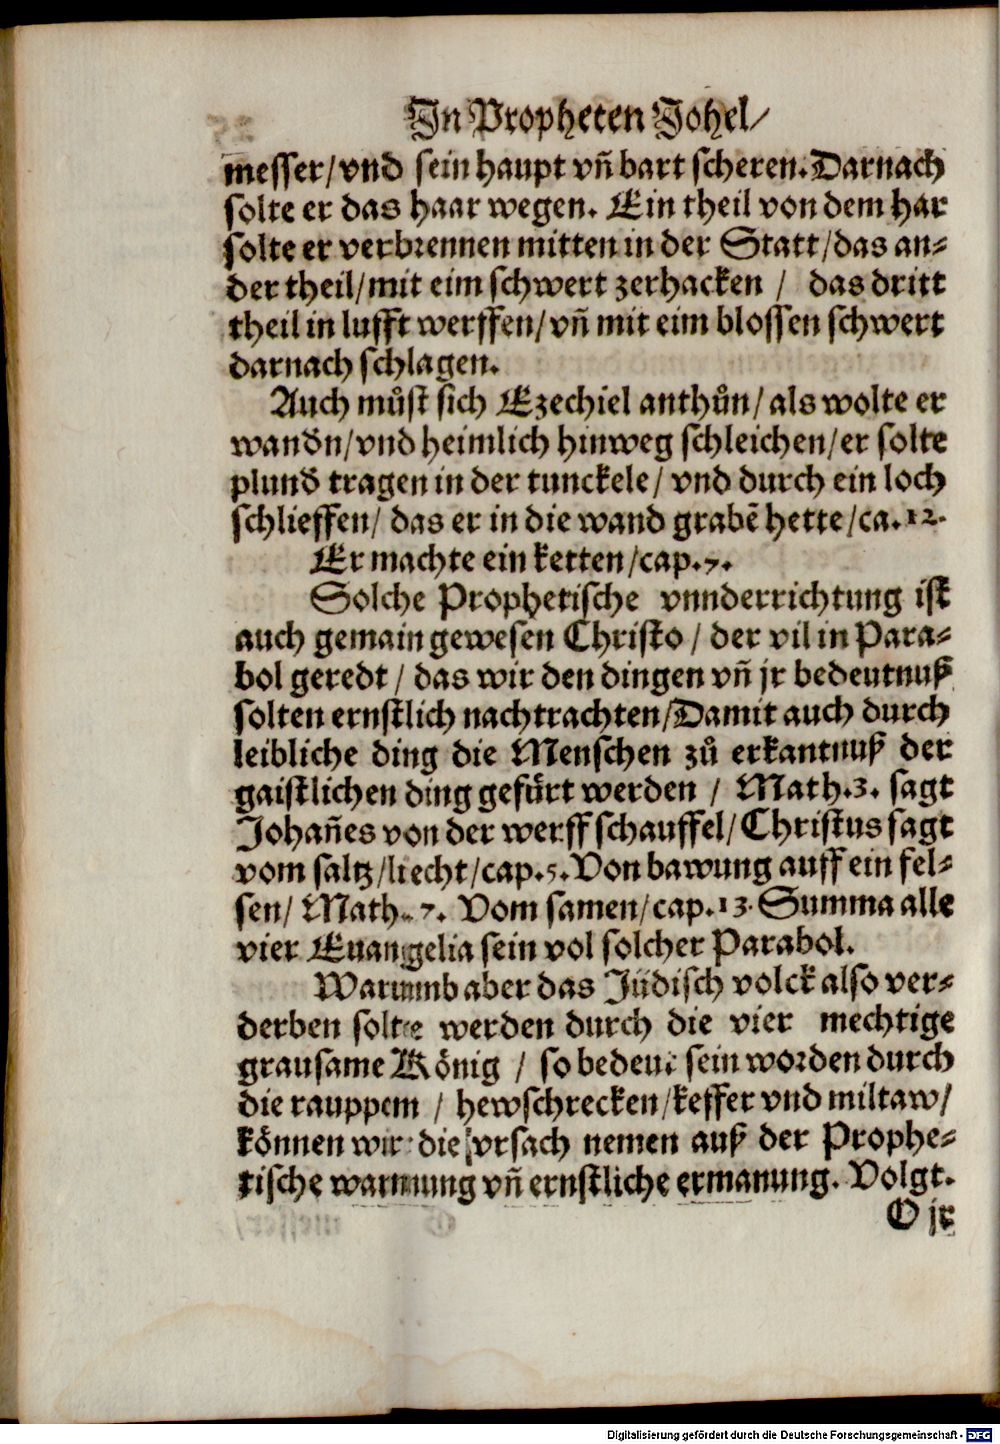 In Propheten Johel/
messer/vnd sein haupt vñ bart scheren. Darnach
solte er das haar wegen. Ein theil von dem har
solte er verbrennen mitten in der Statt/das an-
der theil/mit eim schwert zerhacken / das dritt
theil in lufft werffen/vñ mit eim blossen schwert
darnach schlagen.
Auch můst sich Ezechiel anthůn/als wolte er
wandn/vnd heimlich hinweg schleichen/er solte
plund tragen in der tunckele/ vnd durch ein loch
schlieffen/ das er in die wand grabē hette/ca.12.
Er machte ein ketten/cap.7.
Solche Prophetische vnnderrichtung ist
auch gemain gewesen Christo/ der vil in Para-
bol geredt/ das wir den dingen vñ jr bedeutnuß
solten ernstlich nachtrachten/Damit auch durch
leibliche ding die Menschen zů erkantnuß der
gaistlichen ding gefürt werden / Math.3. sagt
Johañes von der werffschauffel/Christus sagt
vom saltz/liecht/cap.5. Von bawung auff ein fel-
sen/ Math. 7. Vom samen/cap.13. Summa alle
vier Euangelia sein vol solcher Parabol.
Warumb aber das Jüdisch volck also ver-
derben solte werden durch die vier mechtige
grausame König / so bedeut sein worden durch
die rauppem / hewschrecken/keffer vnd miltaw/
können wir die vrsach nemen auß der Prophe-
tische warnung vñ ernstliche ermanung. Volgt.
O jr
Digitalisierung gefördert durch die Deutsche Forschungsgemeinschaft - DFG